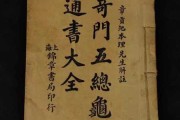 章貢池本理先生解註
奇門五總龜
通書大全
上海錦章書局印行